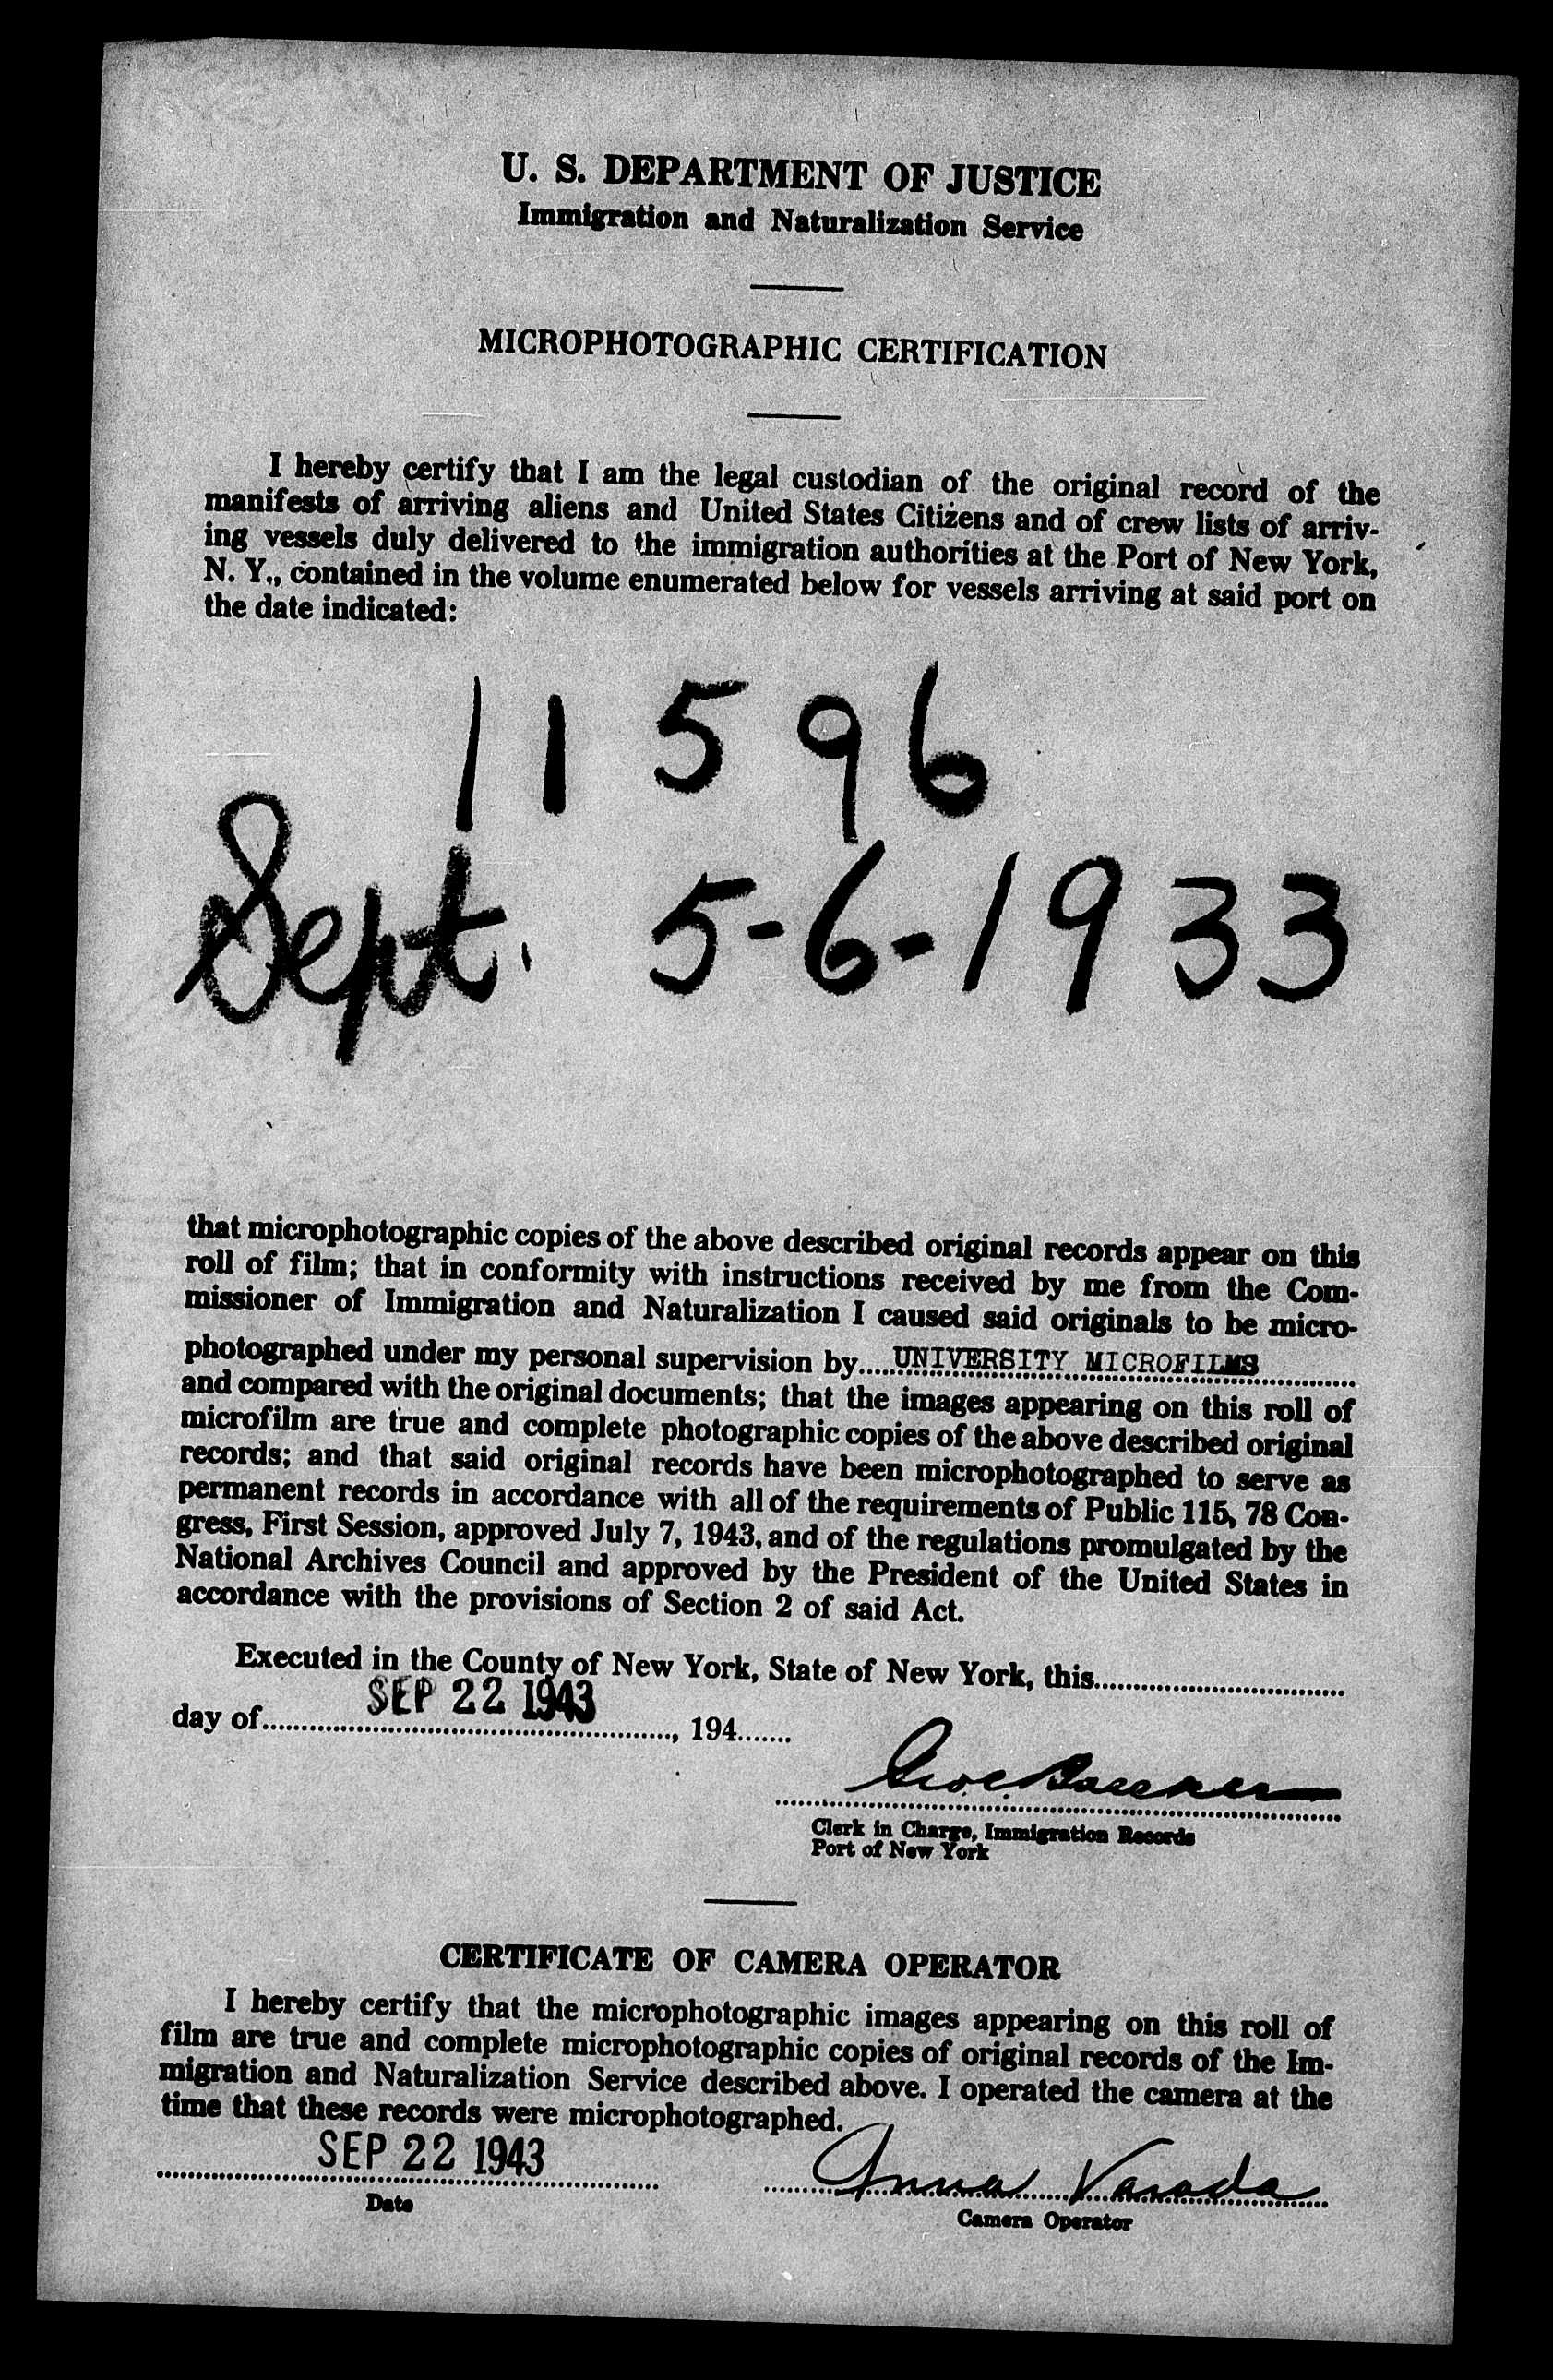 U. S. DEPARTMENT OF JUSTICE
Immigration and Naturalization Service
MICROPHOTOGRAPHIC CERTIFICATION
I hereby certify that I am the legal custodian of the original record of the
manifests of arriving aliens and United States Citizens and of crew lists of arriv-
ing vessels duly delivered to the immigration authorities at the Port of New York,
N. Y., contained in the volume enumerated below for vessels arriving at said port on
the date indicated:
11596
Sept. 5-6-1933
that microphotographic copies of the above described original records appear on this
roll of film; that in conformity with instructions received by me from the Com-
missioner of Immigration and Naturalization I caused said originals to be micro-
photographed under my personal supervision by.....UNIVERSITY MICROFILMS
and compared with the original documents; that the images appearing on this roll of
microfilm are true and complete photographic copies of the above described original
records; and that said original records have been microphotographed to serve as
permanent records in accordance with all of the requirements of Public 115, 78 Con-
gress, First Session, approved July 7, 1943, and of the regulations promulgated by the
National Archives Council and approved by the President of the United States in
accordance with the provisions of Section 2 of said Act.
Executed in the County of New York, State of New York, this
SEP 22 1943
day of, 194
Clerk in Charge, Immigration Records
Port of New York
CERTIFICATE OF CAMERA OPERATOR
I hereby certify that the microphotographic images appearing on this roll of
film are true and complete microphotographic copies of original records of the Im-
migration and Naturalization Service described above. I operated the camera at the
time that these records were microphotographed.
SEP 22 1943 Anna Varada
Date
Camera Operator